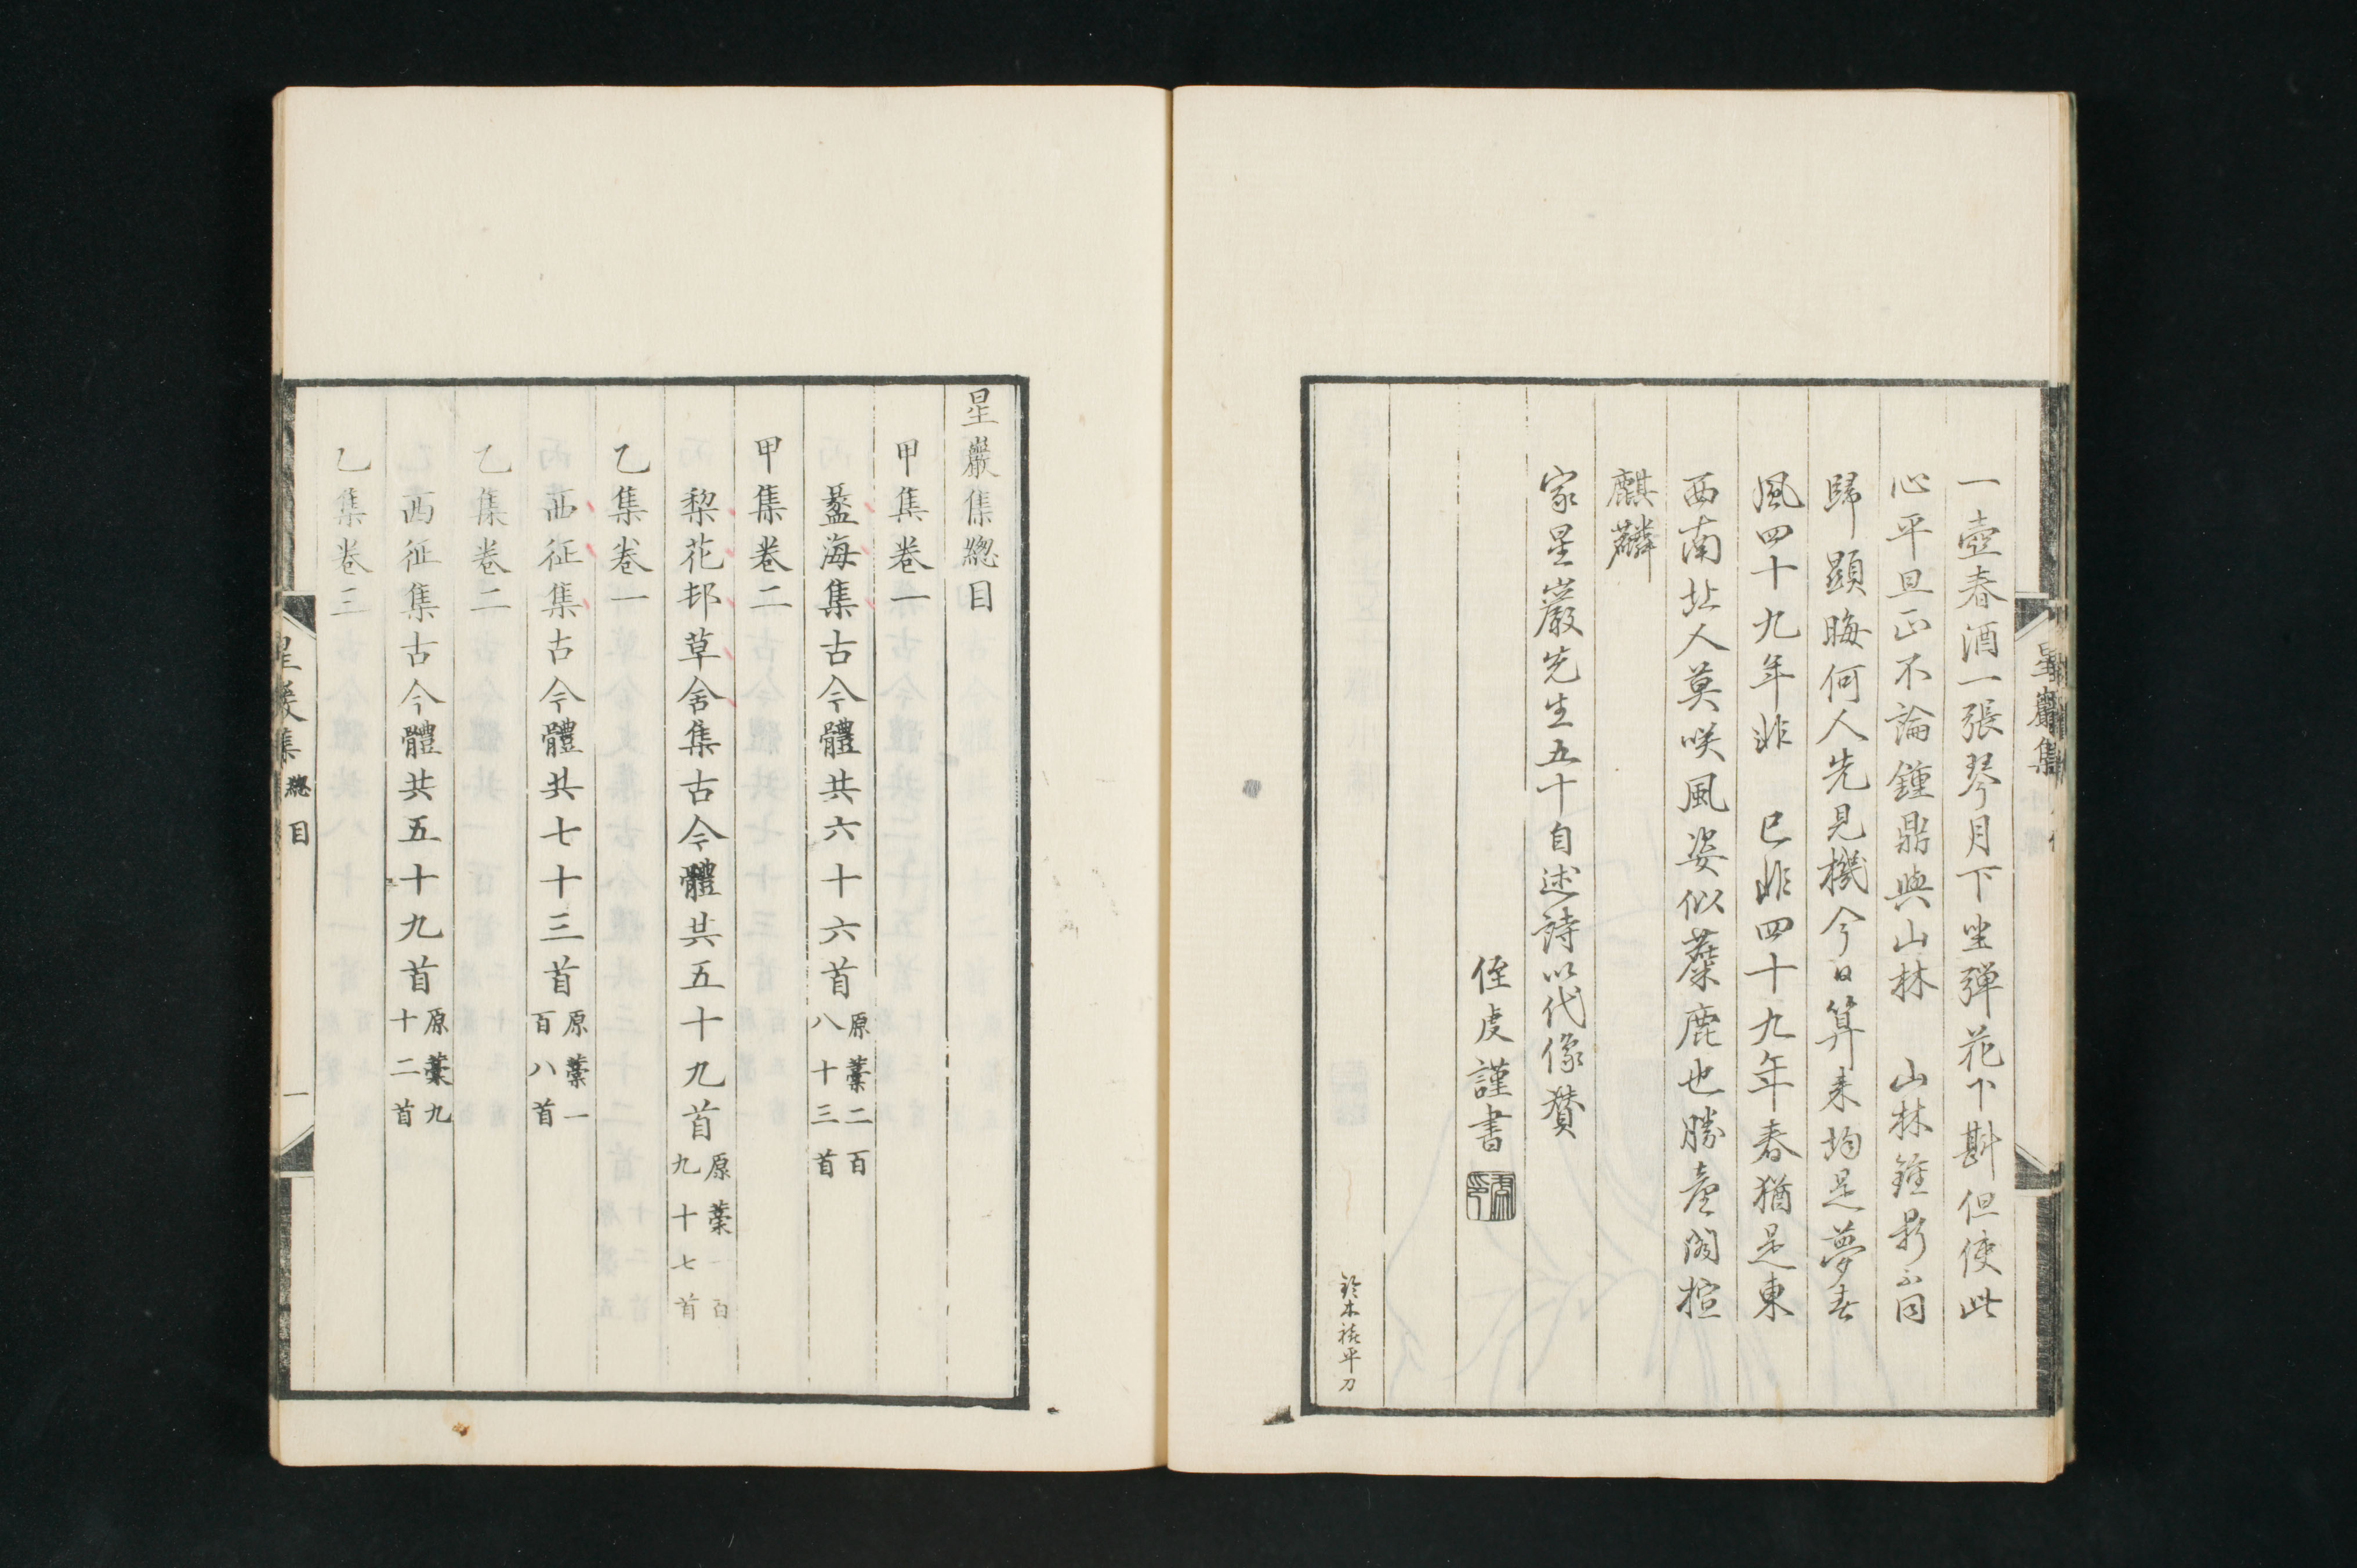 一壺春酒一張琴月下坐彈花下斟但使此
心平且正不論鍾鼎與山林　山林鍾鼎不同
歸顯晦何人先見機今日算来均是夢春
風四十九年非　已非四十九年春猶是東
西南北人莫咲風姿似麋鹿也勝臺閣楦
麒麟
家星巖先生五十自述詩以代像贊
侄虔謹書
鈴木
平刀
星巖集
星巖集總目
甲集卷一
蠡海集古今體共六十六首原藁二百八十三首
甲集卷二
棃花邨草舍集古今體共五十九首原藁一百九十七首
乙集卷一
西征集古今體共七十三首原藁一百八首
乙集卷二
西征集古今體共五十九首原藁九十二首
乙集卷三
星巖集 總目 一